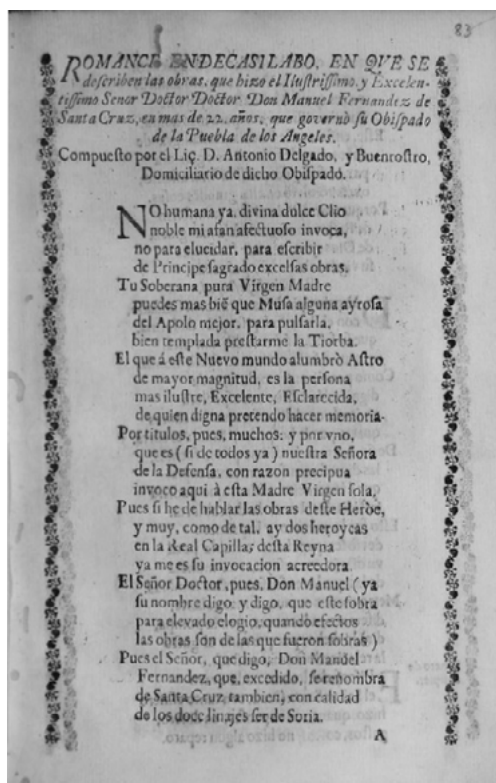 83
ROMANCE ENDECASILABO, EN QVE SE
describen las obras, que hizo el Ilustrissimo, y Excelen-
tissimo Senor Doctor Doctor Don Manuel Fernandez de
Santa Cruz, en mas de 22. años, que governò su Obispado
de la Puebla de los Angeles.
Compuesto por el Liç. D. Antonio Delgado, y Buenrostro,
Domiciliario de dicho Obispado.
NO humana ya, divina dulce Clio
noble mi afan afectuoso invoca,
no para elucidar, para escribir
de Principe sagrado excelsas obras.
Tu Soberana pura Virgen Madre
puedes mas biē que Musa alguna ayrosa
del Apolo mejor, para pulsarla,
bien templada prestarme la Tiorba.
El que á este Nuevo mundo alumbrò Astro
de mayor magnitud, es la persona
mas ilustre, Excelente, Esclarecida,
de quien digna pretendo hacer memoria.
Por titulos, pues, muchos; y por vno,
que es ( si de todos ya ) nuestra Señora
de la Defensa, con razon precipua
invoco aqui à esta Madre Virgen sola.
Pues si he de hablar las obras deste Heròe,
y muy, como de tal, ay dos heroycas
en la Real Capilla, desta Reyna
ya me es su invocacion acreedora.
El Señor Doctor, pues, Don Manuel ( ya
su nombre digo, y digo, que este sobra
para elevado elogio, quando efectos
las obras son de las que fueron sobras )
Pues el Señor, que digo, Don Manuel
Fernandez, que, excedido, se renombra
de Santa Cruz, tambien, con calidad
de los doce linajes ser de Soria.
A